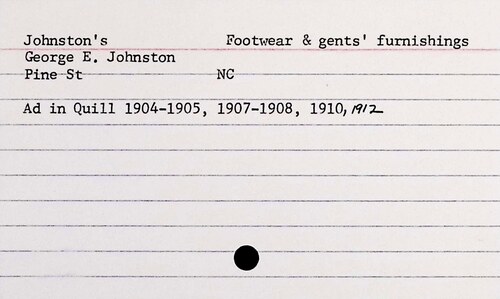 Johnston's Footwear & gents' furnishings
George E. Johnston
Pine St NC
Ad in Quill 1904-1905, 1907-1908, 1910, 1912